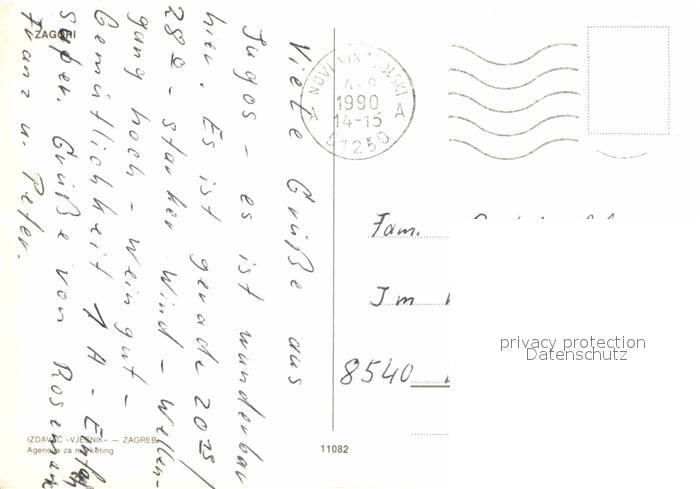 ZAGORI
Viele Grüße aus
Jugos - es ist wunderbar
hier. Es ist gerade 20 15/
28º - starker Wind - Wellen-
gang hoch - Wein gut -
Gemütlichkeit 1A - Einfach
super. Grüße von Rosemarie
Franz u. Peter.
NOVI VINODOLSKI
4-8
1990
14-15
A
57250
Fam.
Im
8540
privacy protection
Datenschutz
IZDAVAČ «VJESNIK» — ZAGREB
Agencija za marketing
11082